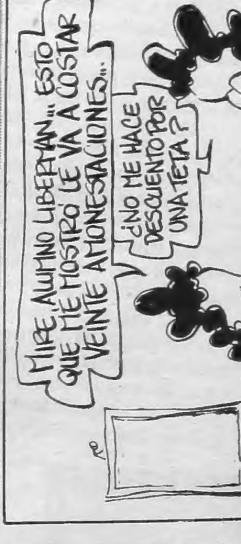 MIRE, ALUMNO LIBERMAN... ESTO
QUE ME MOSTRÓ LE VA A COSTAR
VEINTE AMONESTACIONES...
¿NO ME HACE
DESCUENTO POR
UNA TETA?